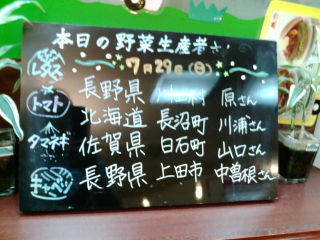 本日の野菜生産者さん
7月29日(日)
レタス 長野県 川上村 原さん
トマト 北海道 長沼町 川浦さん
タマネギ 佐賀県 白石町 山口さん
キャベツ 長野県 上田市 中曽根さん